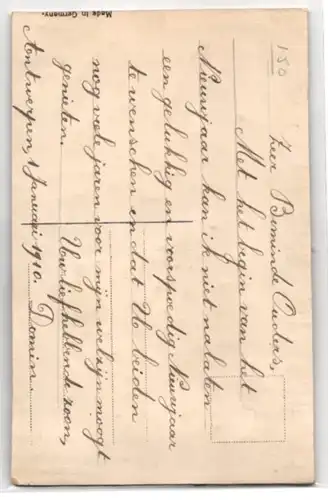 Made in Germany.
150
Zeer Beminde Ouders,
Met het begin van het
Nieuwjaar kan ik niet nalaten
een gelukkig en voorspoedig Nieuwjaar
te wenschen en dat U beiden
nog vele jaren voor mijn welzijn moogt
genieten.
Uw liefhebbende zoon,
Antwerpen, 1 Januari 1910. Domin.